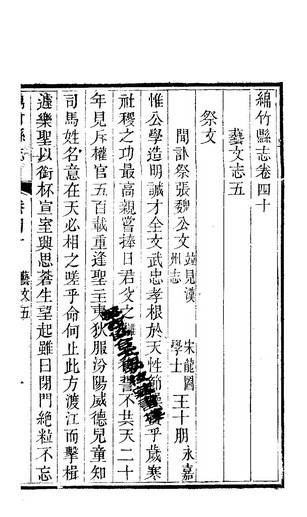 綿竹縣志卷四十
藝文志五
祭文
聞訃祭張魏公文 竝見漢州志 朱龍圖學士 王十朋 永嘉
惟公學造明誠才全文武忠孝根於天性節
乎歲寒
社稷之功最高親嘗捧日君父之
誓不共天二十
年見斥權官五百載重逢聖主夷狄服汾陽威德兒童知
司馬姓名意在天必相之嗟乎命何止此方渡江而擊楫
遽樂聖以銜杯宣室興思蒼生望起雖曰閉門絶粒不忘
綿竹縣志
卷四十
藝文五
一